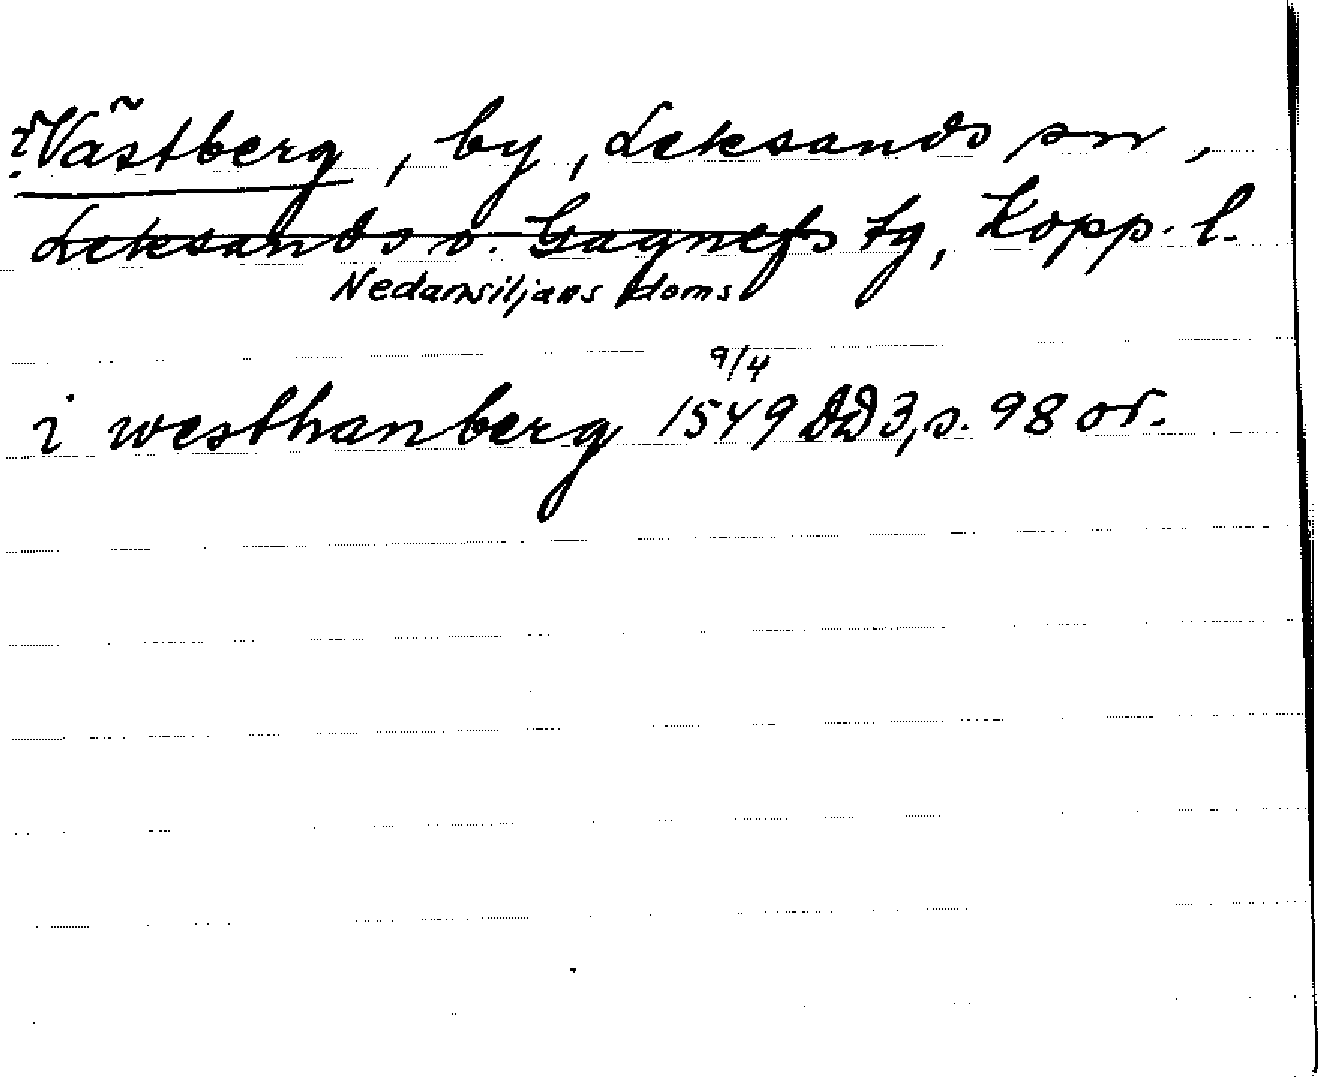 ?Västberg, by, Leksands sn,
Leksands o. Gagnefs tg, Kopp. l.
Nedansiljans doms
9/4
i westhanberg 1549 DD 3, s. 98 or.